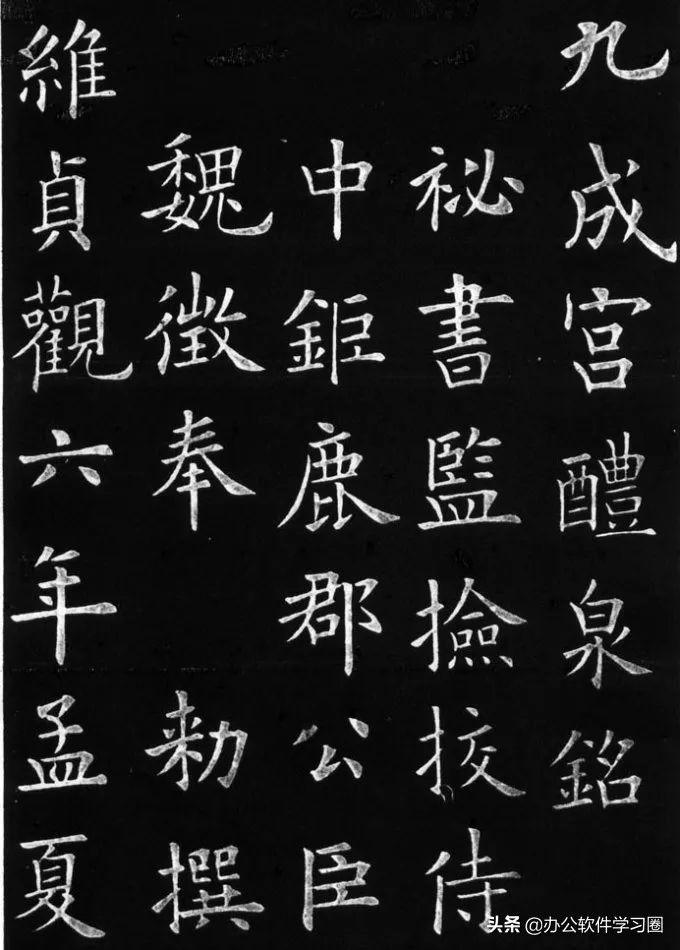 九成宮醴泉銘
祕書監撿挍侍
中鉅鹿郡公臣
魏徵奉 勑撰
維貞觀六年孟夏
头条 @办公软件学习圈